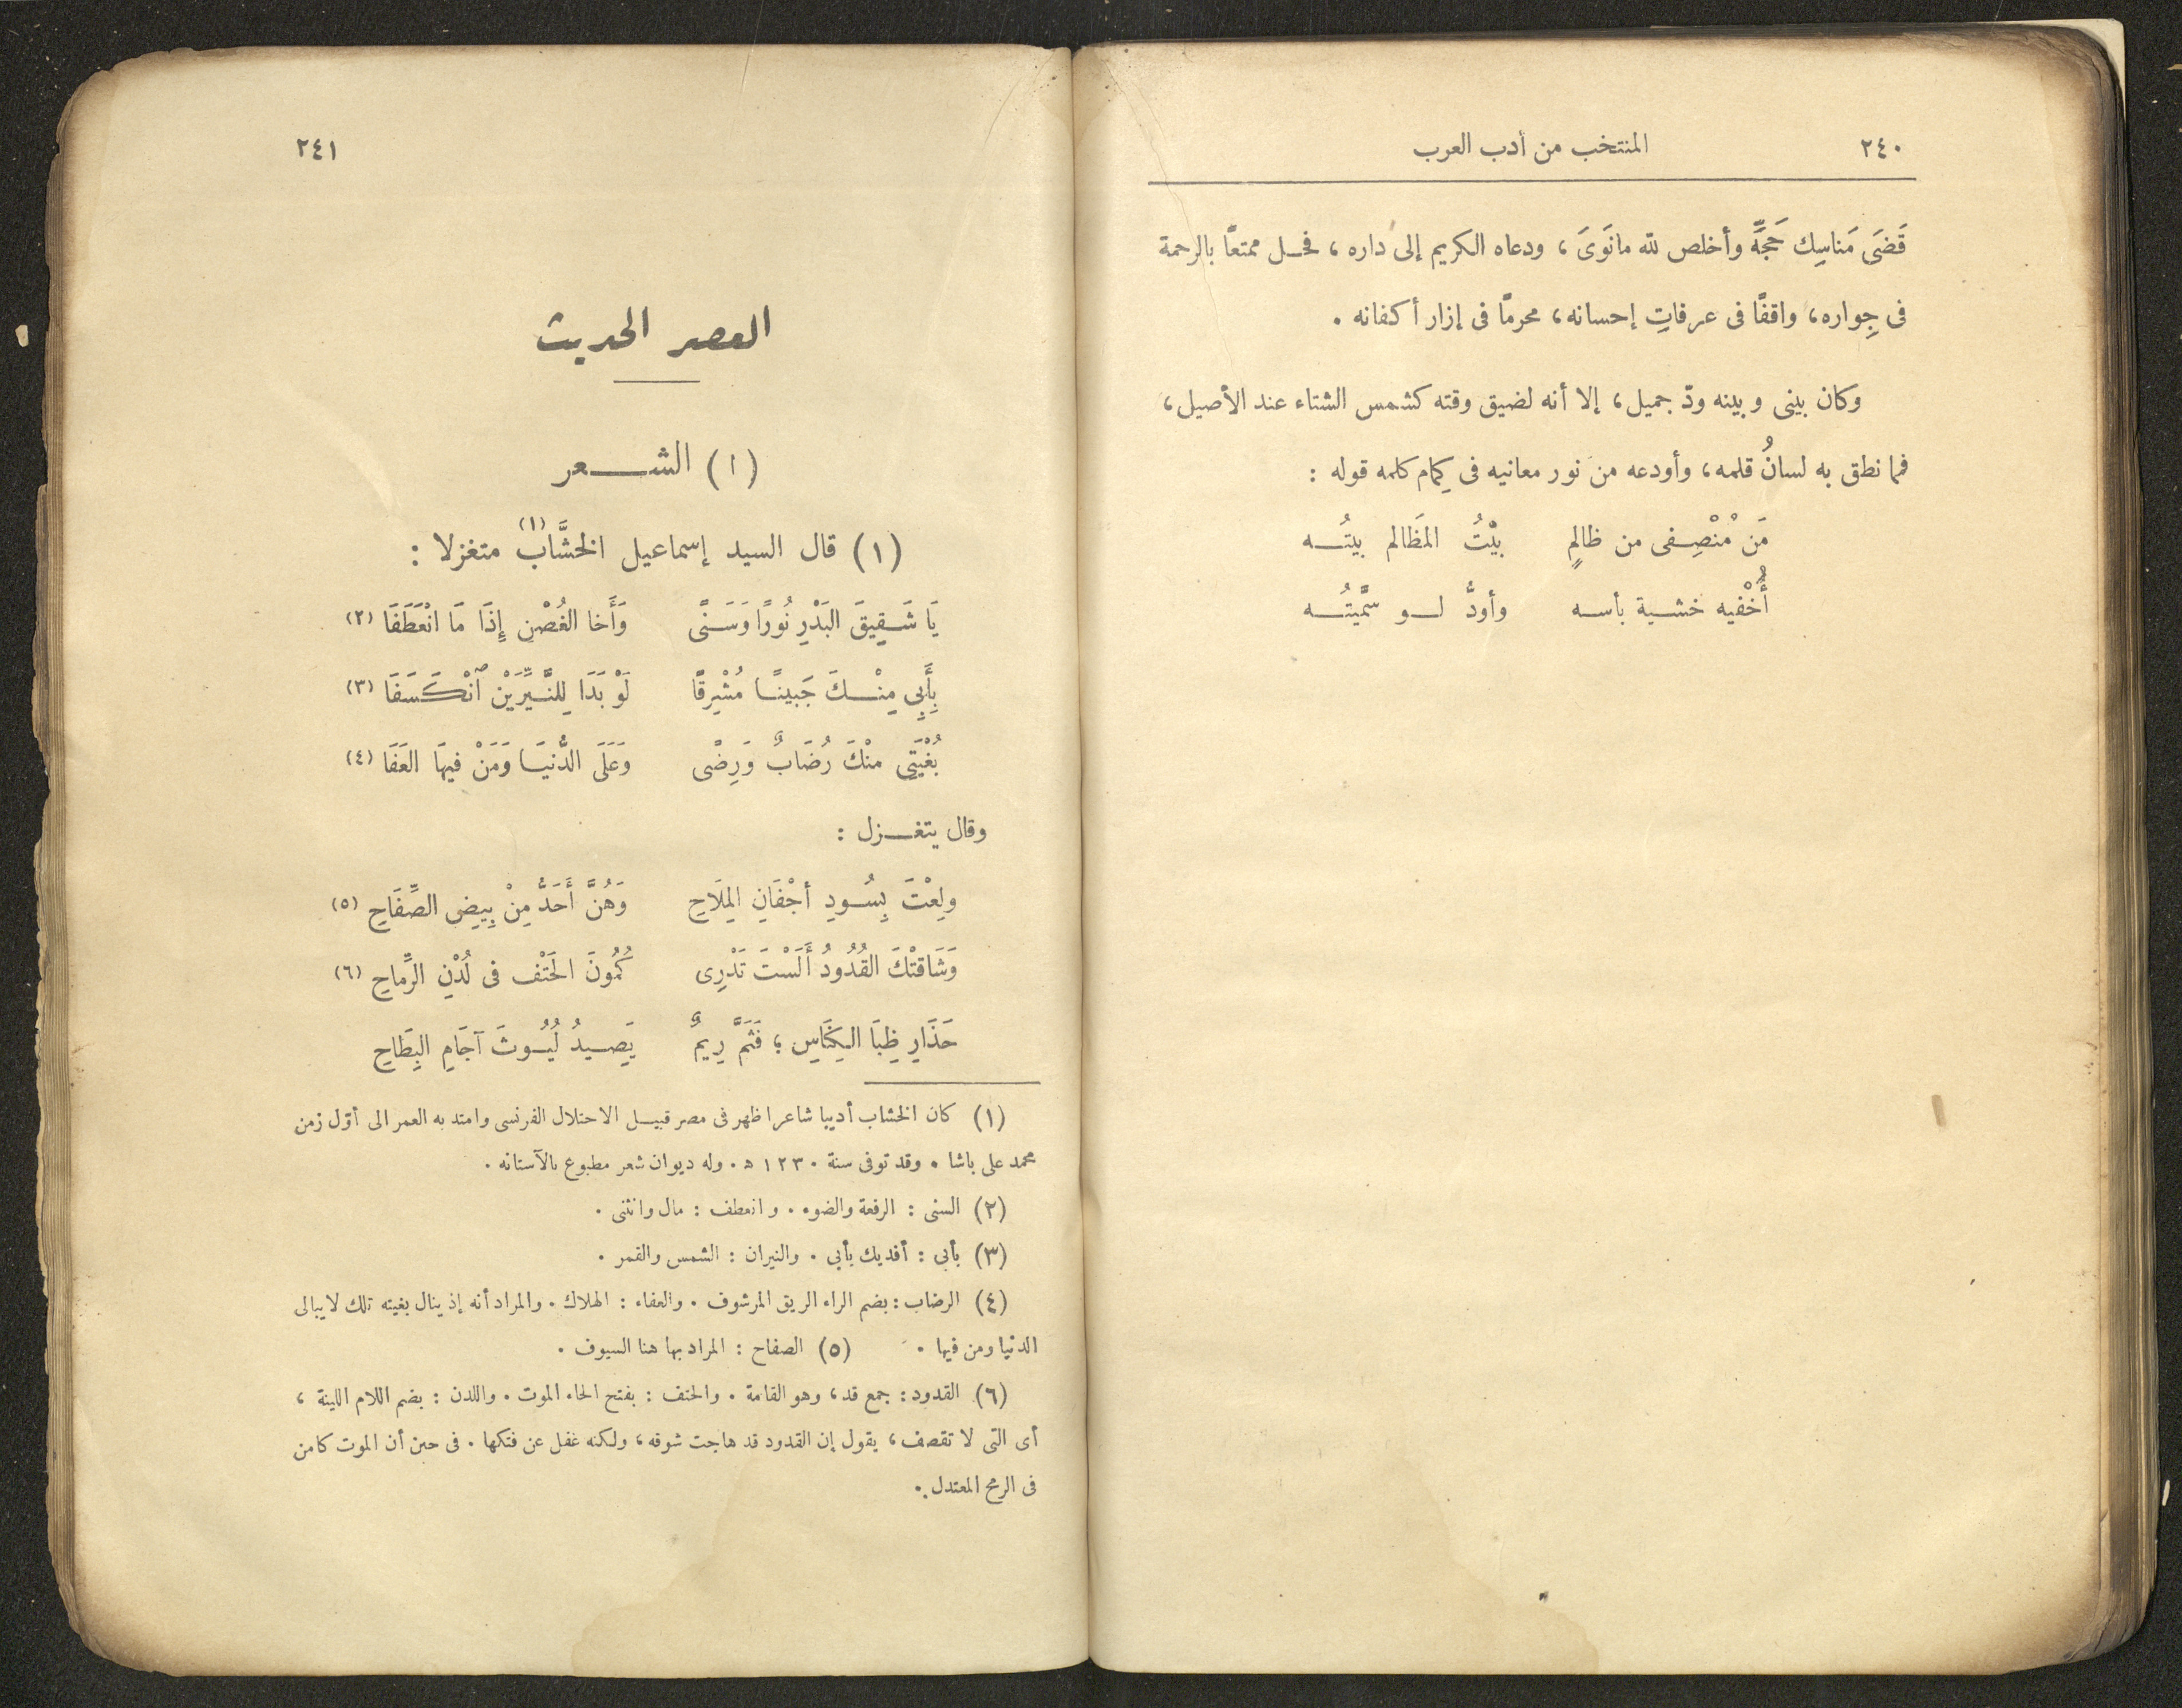 ٢٤٠
المنتخب من أدب العرب
قَضَى مَناسِك حَجِّه وأخلص لله مانَوَى ، ودعاه الكريم إلى داره ، فحل ممتعًا بالرحمة
فى جِواره ، واقفًا فى عرفاتِ إحسانه ، محرمًا فى إزار أكفانه .
وكان بينى وبينه ودّ جميل ، إلا أنه لضيق وقته كشمس الشتاء عند الأصيل ،
فما نطق به لسانُ قلمه ، وأودعه من نور معانيه فى كِمام كلمه قوله :
مَن مُنْصِفى من ظالمٍ بيْتُ المَظالم بيتُه
أُخْفيه خشية بأسه وأودُّ لو سمَّيتُه
٢٤١
العصر الحديث
(١) الشعر
(١) قال السيد إسماعيل الخشَّاب (١) متغزلا :
يَا شَقِيقَ البَدْرِ نُورًا وَسَنًى وَأَخا الغُصْنِ إِذَا مَا انْعَطَفَا (٢)
بِأَبِي مِنْكَ جَبينًا مُشْرِقًا لَوْ بَدَا لِلنَّيِّرَيْنِ ٱنْكَسَفَا (٣)
بُغْيَتِى منْكَ رُضَابٌ وَرِضًى وَعَلَى الدُّنيَا وَمَنْ فيهَا العَفَا (٤)
وقال يتغزل :
ولِعْتَ بِسُودِ أجْفَانِ المِلَاحِ وَهُنَّ أَحَدُّ مِنْ بِيضِ الصِّفَاحِ (٥)
وَشَاقتْكَ القُدُودُ أَلَسْتَ تَدْرِى كُمُونَ الحَتْف فى لُدْنِ الرِّماحِ (٦)
حَذَارِ ظِبَا الكِنَاسِ ؛ فَثَمَّ رِيمٌ يَصيدُ لُيُوثَ آجَامِ البِطَاحِ
(١) كان الخشاب أديبا شاعرا ظهر فى مصر قبيل الاحتلال الفرنسى وامتد به العمر الى أوّل زمن
محمد على باشا . وقد توفى سنة ١٢٣٠ ه . وله ديوان شعر مطبوع بالآستانه .
(٢) السنى : الرفعة والضوء . وانعطف : مال وانثنى .
(٣) بأبى : أفديك بأبى . والنيران : الشمس والقمر .
(٤) الرضاب : بضم الراء الريق المرشوف . والعفاء : الهلاك . والمراد أنه إذ ينال بغيته تلك لا يبالى
الدنيا ومن فيها . (٥) الصفاح : المراد بها هنا السيوف .
(٦) القدود : جمع قد ، وهو القامة . والحتف : بفتح الحاء الموت . واللدن : بضم اللام اللينة ،
أى التى لا تقصف ، يقول إن القدود قد هاجت شوقه ، ولكنه غفل عن فتكها . فى حين أن الموت كامن
فى الرمح المعتدل .